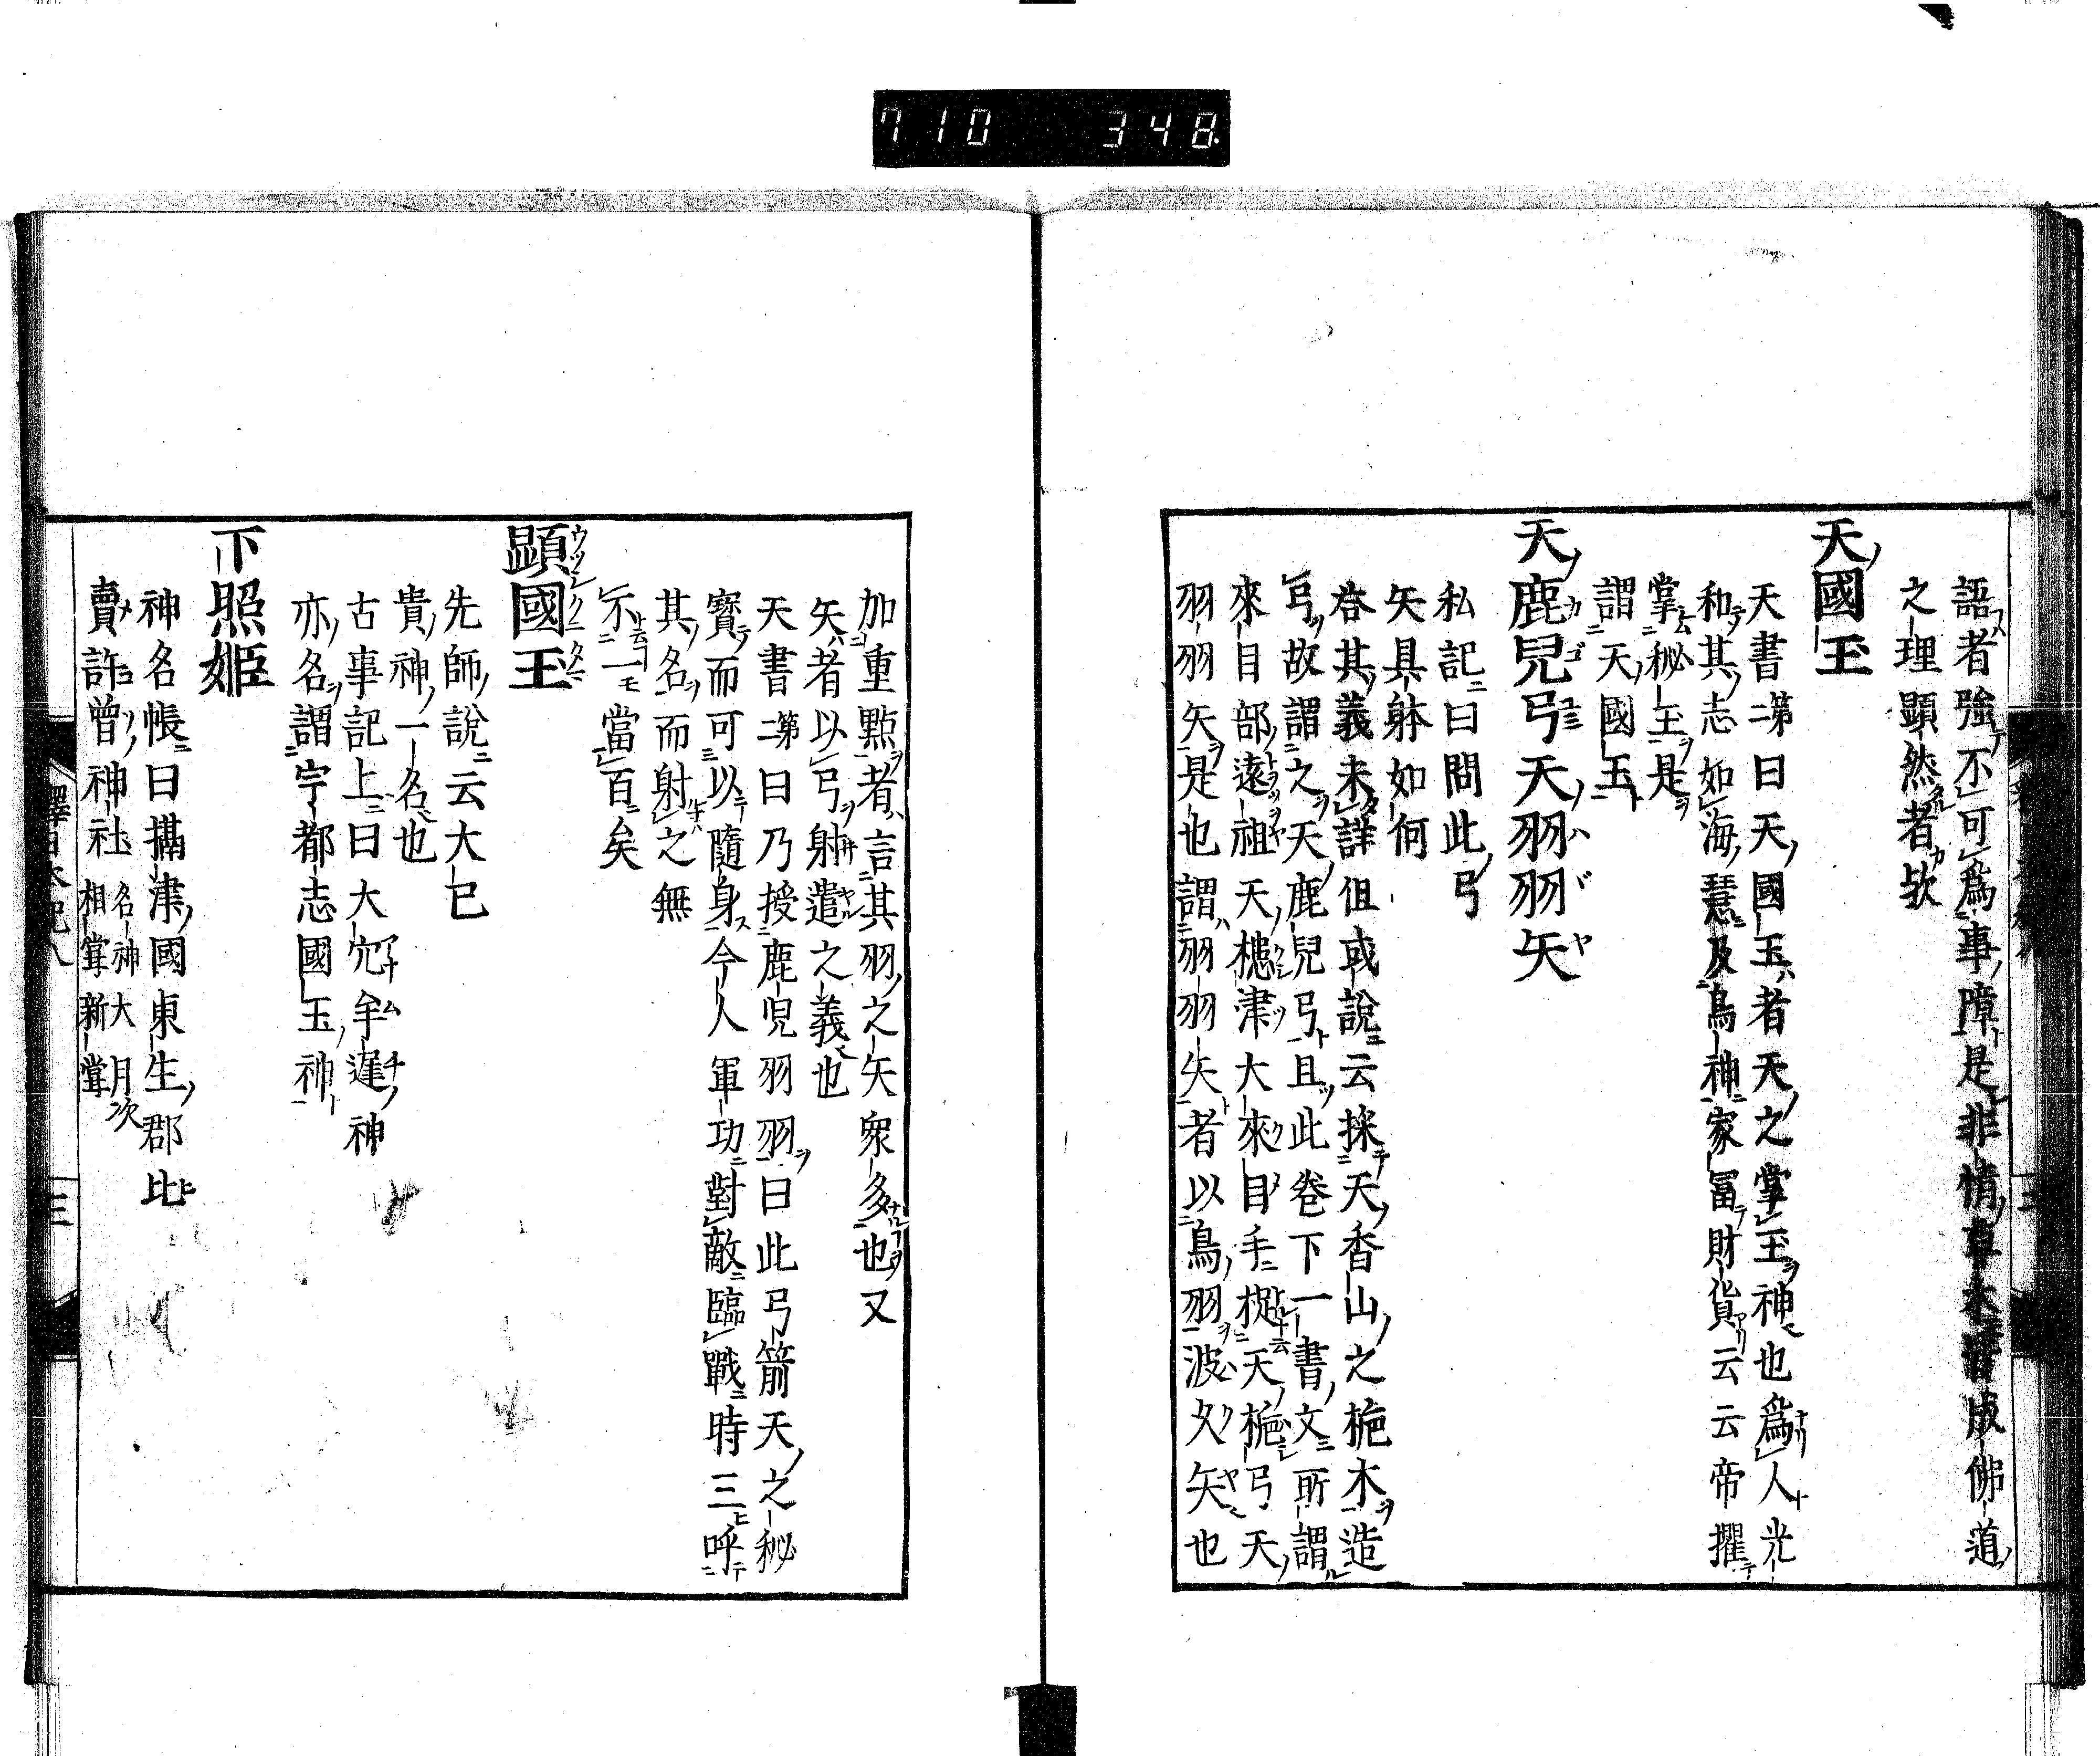 710 348
語者強不可為事障是非情草木皆成佛道
之理顕然者歟
天國玉
天書第二曰天國玉者天之掌玉神也為人光
和其志如海慧及鳥神家冨財貨云云帝擢
掌秘玉是
謂天國玉
天鹿兒弓天羽羽矢
私記曰問此弓
矢具躰如何
荅其義未詳但或說云採天香山之梔木造
弓故謂之天鹿兒弓且此巻下一書文所謂
來目部遠祖天槵津大來目手捉天梔弓天
羽羽矢是也謂羽羽矢者以鳥羽波久矢也
加重點者言其羽之矢衆多也又
矢者以弓射遣之義也
天書第二曰乃授鹿児羽羽曰此弓箭天之秘
寳而可以隨身今人軍功對敵臨戰時三呼
其名而射之無
不一當百矣
顕國玉
先師說云大己
貴神一名也
古事記上曰大穴牟遅神
亦名謂宇都志國玉神
下照姫
神名帳曰攝津國東生郡比
賣許曽神社名神大月次相甞新甞
釋日本紀八
三